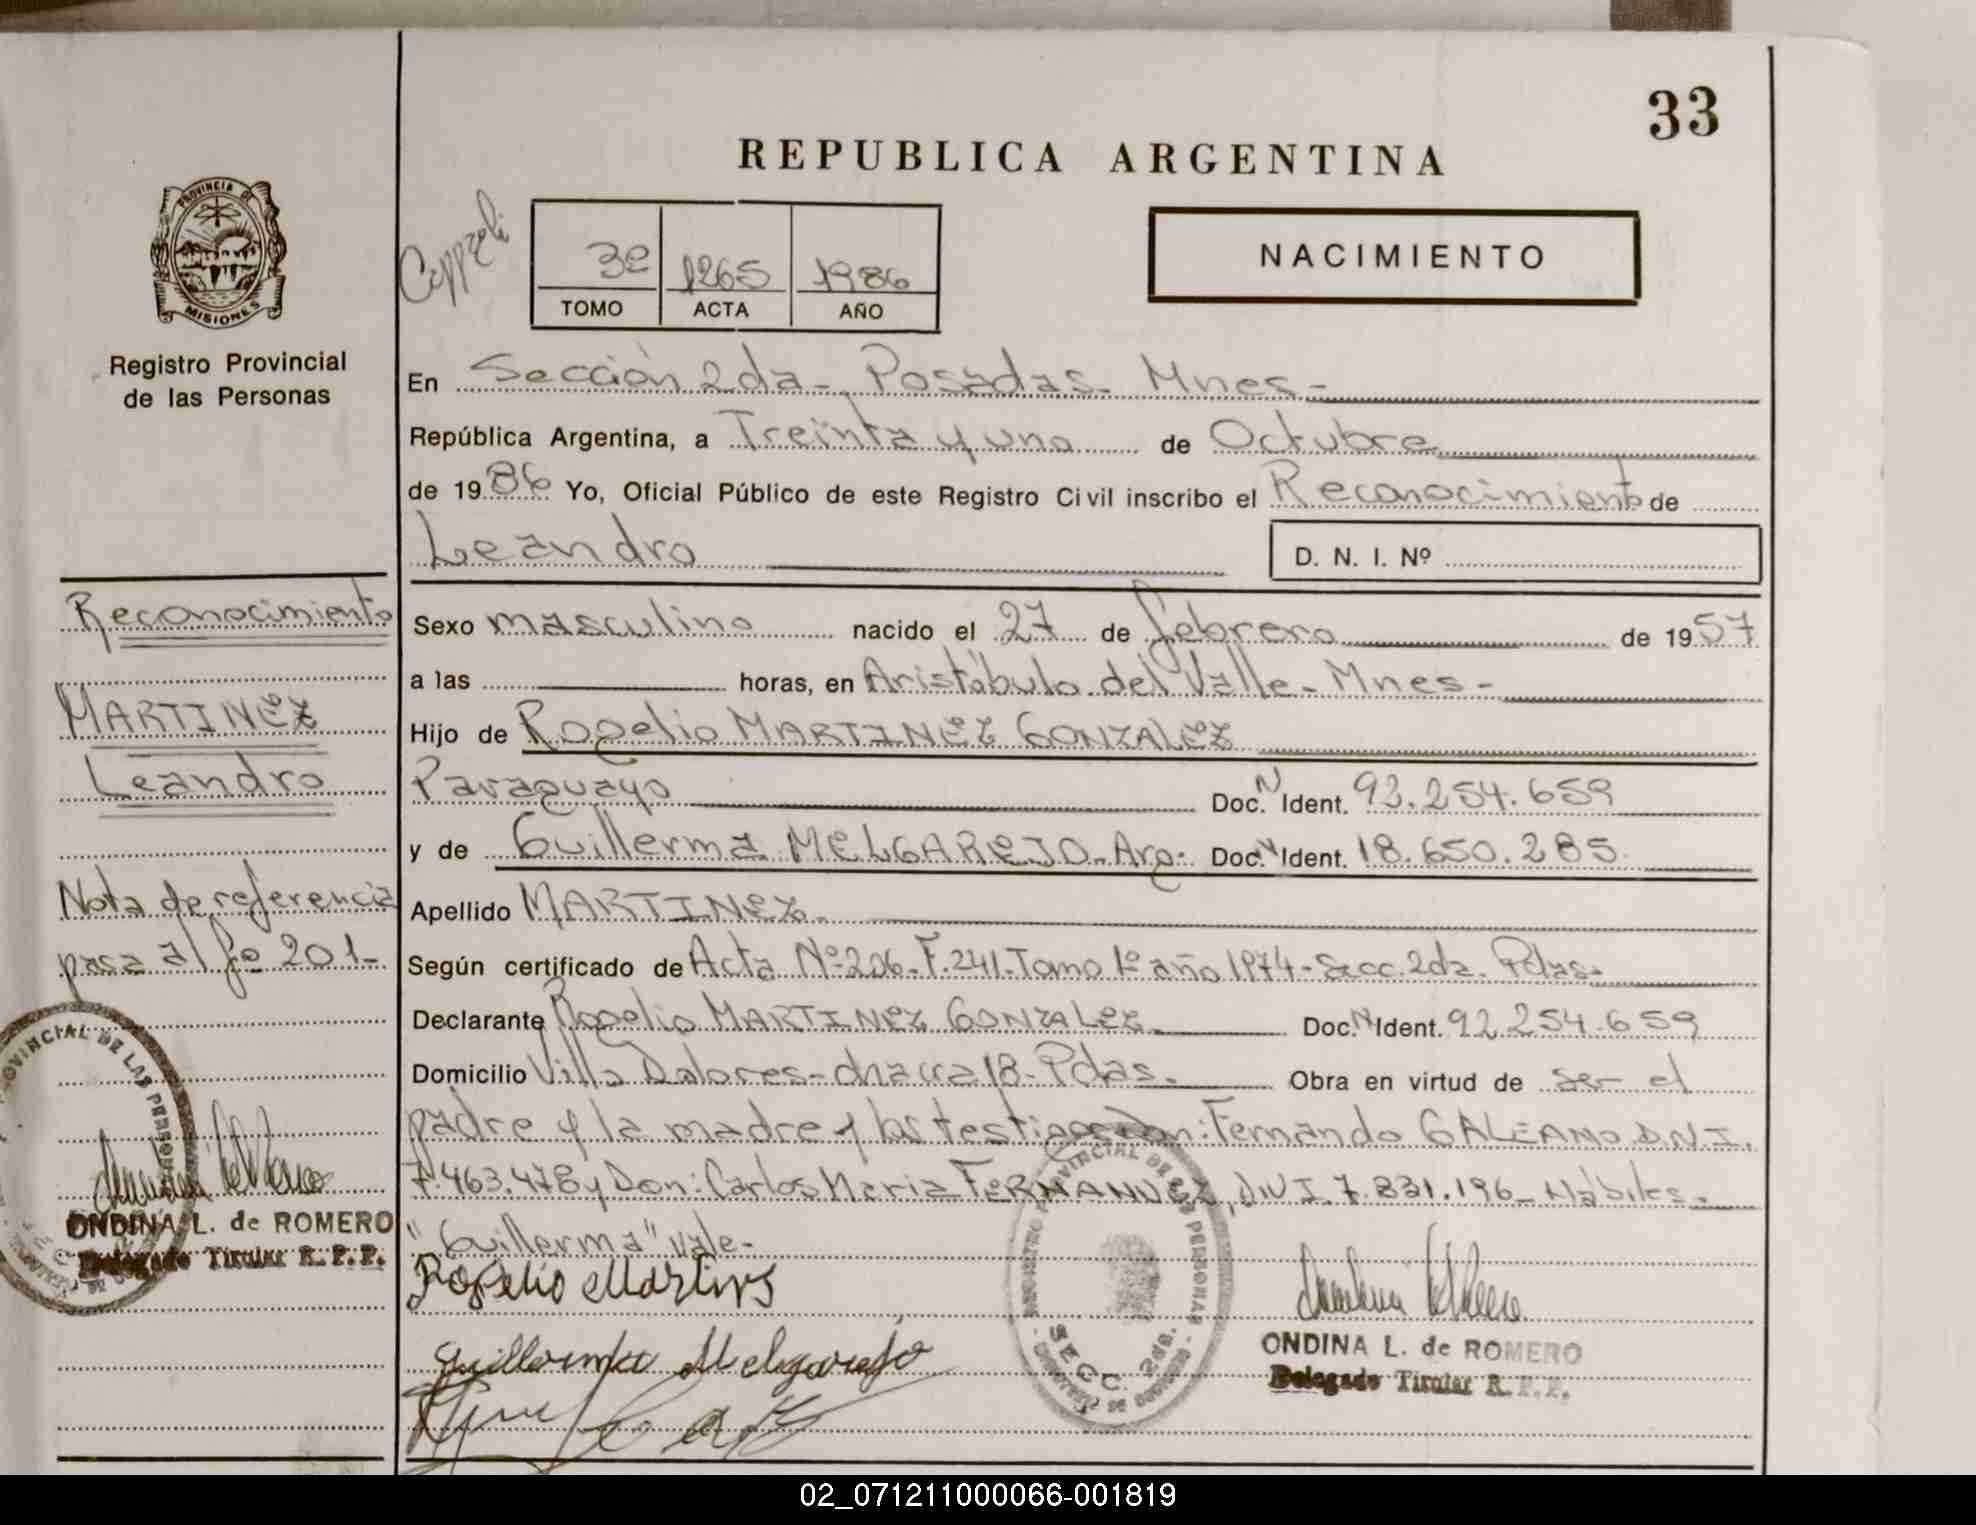 33
REPUBLICA ARGENTINA
PROVINCIA DE
MISIONES
Registro Provincial
de las Personas
3º 1265 1986
TOMO ACTA AÑO
NACIMIENTO
En Sección 2da - Posadas - Mnes -
República Argentina, a Treinta y uno de Octubre
de 1986 Yo, Oficial Público de este Registro Civil inscribo el Reconocimiento de
Leandro
D. N. I. Nº
Sexo masculino nacido el 27 de febrero de 1957
a las horas, en Aristóbulo del Valle - Mnes -
Hijo de Rogelio MARTINEZ GONZALEZ
Paraguayo Doc. N Ident. 92.254.659
y de Guillerma MELGAREJO - Arg. Doc. N Ident. 18.650.285.
Apellido MARTINEZ.
Según certificado de Acta Nº 206 - F. 241 - Tomo 1º año 1974 - Secc. 2da. Pdas.
Declarante Rogelio MARTINEZ GONZALEZ Doc. N Ident. 92.254.659
Domicilio Villa Dolores - chacra 18 - Pdas. Obra en virtud de ser el
padre y la madre y los testigos : Fernando GALEANO D.N.I.
7.463.478 y Don : Carlos Maria FERNANDEZ, D.N.I. 7.831.196 - Hábiles.
"Guillerma" vale -
Rogelio Martines
Guillerma Melgarejo
ONDINA L. de ROMERO
Delegado Titular R. P. P.
PROVINCIAL DE LAS PERSONAS
SECC. 2da.
Reconocimiento
MARTINEZ
Leandro
Nota de referencia
pasa al fº 201 -
PROVINCIAL DE LAS PERSONAS
ONDINA L. de ROMERO
Delegado Titular R. P. P.
02_071211000066-001819